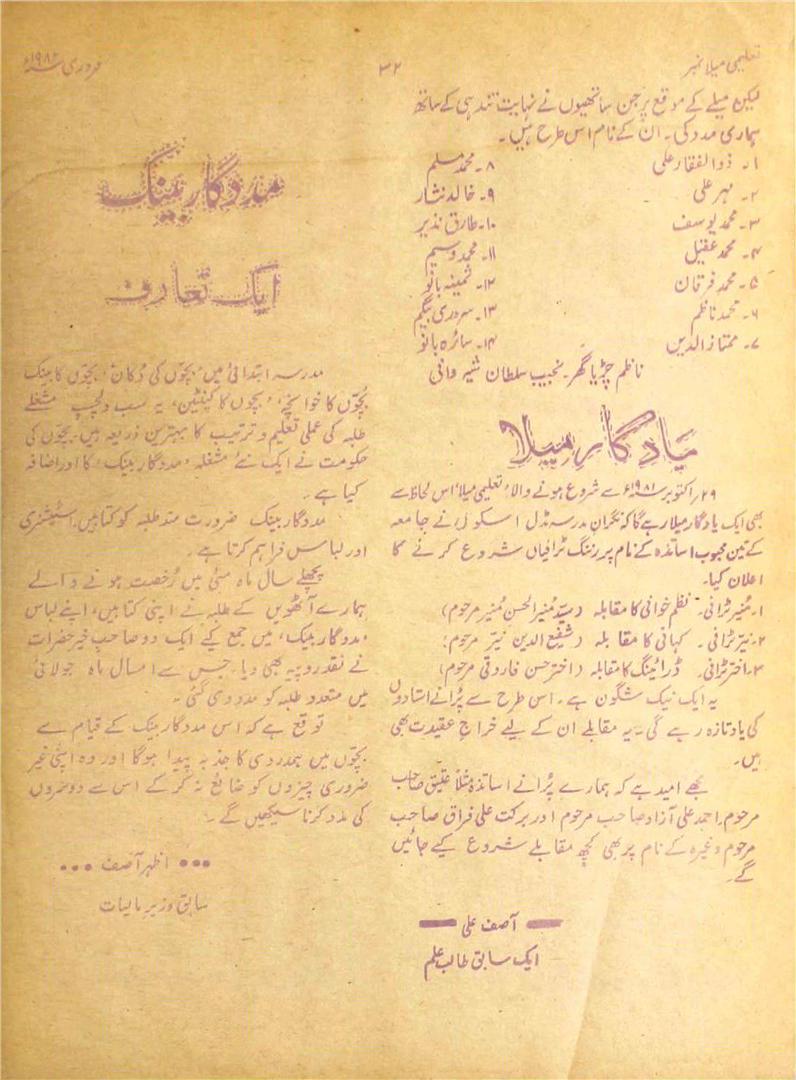 تعلیمی میلا نمبر
۳۲
فروری ۱۹۸۲ء
لیکن میلے کے موقع پر جن ساتھیوں نے نہایت تندہی کے ساتھ
ہماری مدد کی۔ ان کے نام اس طرح ہیں۔
۱۔ ذوالفقار علی
۲۔ مہر علی
۳۔ محمد یوسف
۴۔ محمد عقیل
۵۔ محمد فرقان
۶۔ محمد ناظم
۷۔ ممتاز الدین
۸۔ محمد مسلم
۹۔ خالد نثار
۱۰۔ طارق نذیر
۱۱۔ محمد وسیم
۱۲۔ ثمینہ بانو
۱۳۔ سروری بیگم
۱۴۔ سائرہ بانو
ناظم چڑیا گھر۔ نجیب سلطان شیروانی
یادگار میلا
۲۹؍ اکتوبر ۱۹۸۱ء سے شروع ہونے والا 'تعلیمی میلا' اس لحاظ سے
بھی ایک یادگار میلا رہے گا کہ نگران مدرسہ مڈل اسکول نے جامعہ
کے تین محبوب اساتذہ کے نام پر رننگ ٹرافیاں شروع کرنے کا
اعلان کیا۔
۱۔ مُنیر ٹرافی۔ نظم خوانی کا مقابلہ (سیّد مُنیر الحسن مُنیر مرحوم)
۲۔ نیّر ٹرافی۔ کہانی کا مقابلہ (شفیع الدین نیّر مرحوم)
۳۔ اختر ٹرافی۔ ڈرائنگ کا مقابلہ (اختر حسن فاروقی مرحوم)
یہ ایک نیک شگون ہے۔ اس طرح سے پُرانے استادوں
کی یاد تازہ رہے گی۔ یہ مقابلے ان کے لیے خراجِ عقیدت بھی
ہیں۔
مجھے امید ہے کہ ہمارے پُرانے اساتذہ مثلاً عتیق صاحب
مرحوم، احمد علی آزاد صاحب مرحوم اور برکت علی فراق صاحب
مرحوم وغیرہ کے نام پر بھی کچھ مقابلے شروع کیے جائیں
گے۔
آصف علی
ایک سابق طالب علم
مددگار بینک
ایک تعارف
مدرسہ ابتدائی میں 'بچّوں کی دُکان'، 'بچّوں کا بینک
بچّوں کا خوانچہ'، 'بچوں کا کینٹین'، یہ سب دلچسپ مشغلے
طلبہ کی عملی تعلیم و تربیت کا بہترین ذریعہ ہیں۔ بچّوں کی
حکومت نے ایک نئے مشغلہ 'مددگار بینک' کا اور اضافہ
کیا ہے۔
مددگار بینک ضرورت مند طلبہ کو کتابیں، اسٹیشنری
اور لباس فراہم کرتا ہے۔
پچھلے سال ماہ مئی میں رُخصت ہونے والے
ہمارے آٹھویں کے طلبہ نے اپنی کتابیں، اپنے لباس
'مددگار بینک' میں جمع کیے ایک دو صاحبِ خیر حضرات
نے نقد روپیہ بھی دیا۔ جس سے امسال ماہ جولائی
میں متعدد طلبہ کو مدد دی گئی۔
توقع ہے کہ اس مددگار بینک کے قیام سے
بچّوں میں ہمدردی کا جذبہ پیدا ہوگا اور وہ اپنی غیر
ضروری چیزوں کو ضائع نہ کر کے اس سے دوسروں
کی مدد کرنا سیکھیں گے۔
اظہر آصف
سابق وزیر مالیات